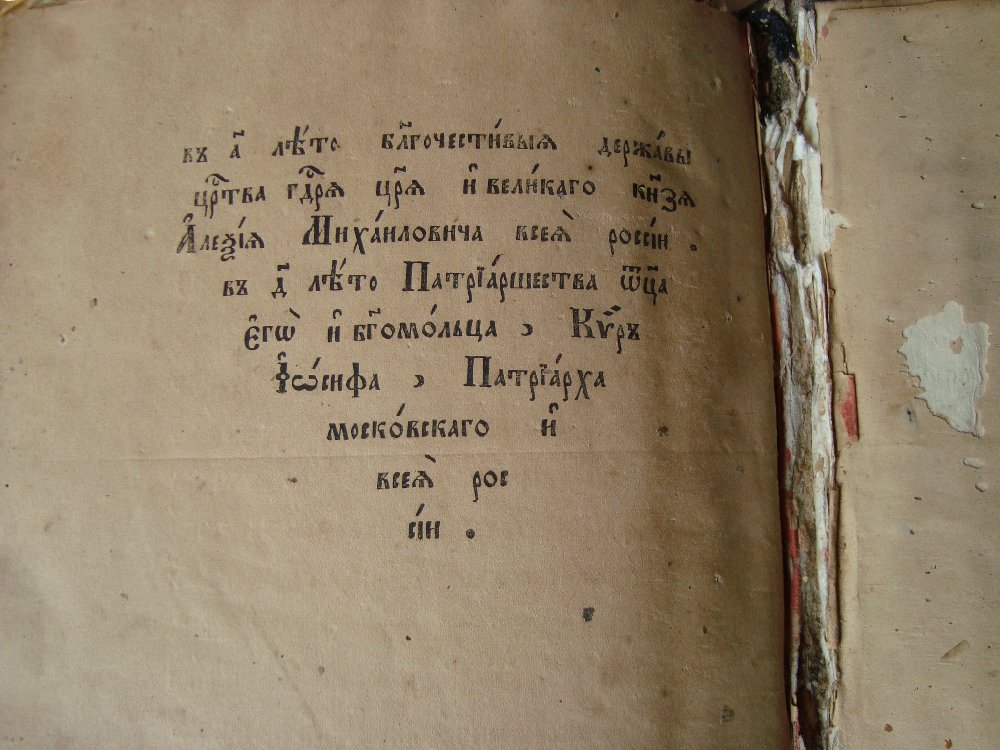 въ а҃ лѣ́то бл҃гочести́выѧ держа́вы
црⷭ҇тва гдⷭ҇рѧ црѧ҃ и҆ вели́каго кн҃зѧ
А҆леѯі́ѧ Миха́иловича всеѧ̀ росси́и .
въ д҃ лѣ́то Патріа́ршества ѿц҃а
є҆гѡ̀ и҆ бг҃омо́льца , Кѵ́ръ
І҆ѡ́сифа , Патріа́рха
моско́вскаго и҆
всеѧ̀ рос
сі́и .